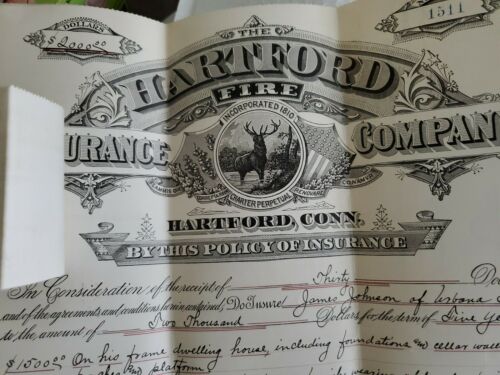 DOLLARS
$2000.00
1511
THE
HARTFORD
FIRE
INCORPORATED 1810
URANCE COMPAN
CHARTER PERPETUAL
HARTFORD, CONN.
BY THIS POLICY OF INSURANCE
In Consideration of the receipt of Thirty Do
and of the agreements and conditions herein contained, Do Insure James Johnson of Urbana
to the amount of Two Thousand Dollars for the term of Five Ye
$1500.00 On his frame dwelling house, including foundations and cellar wall
platform
wearing